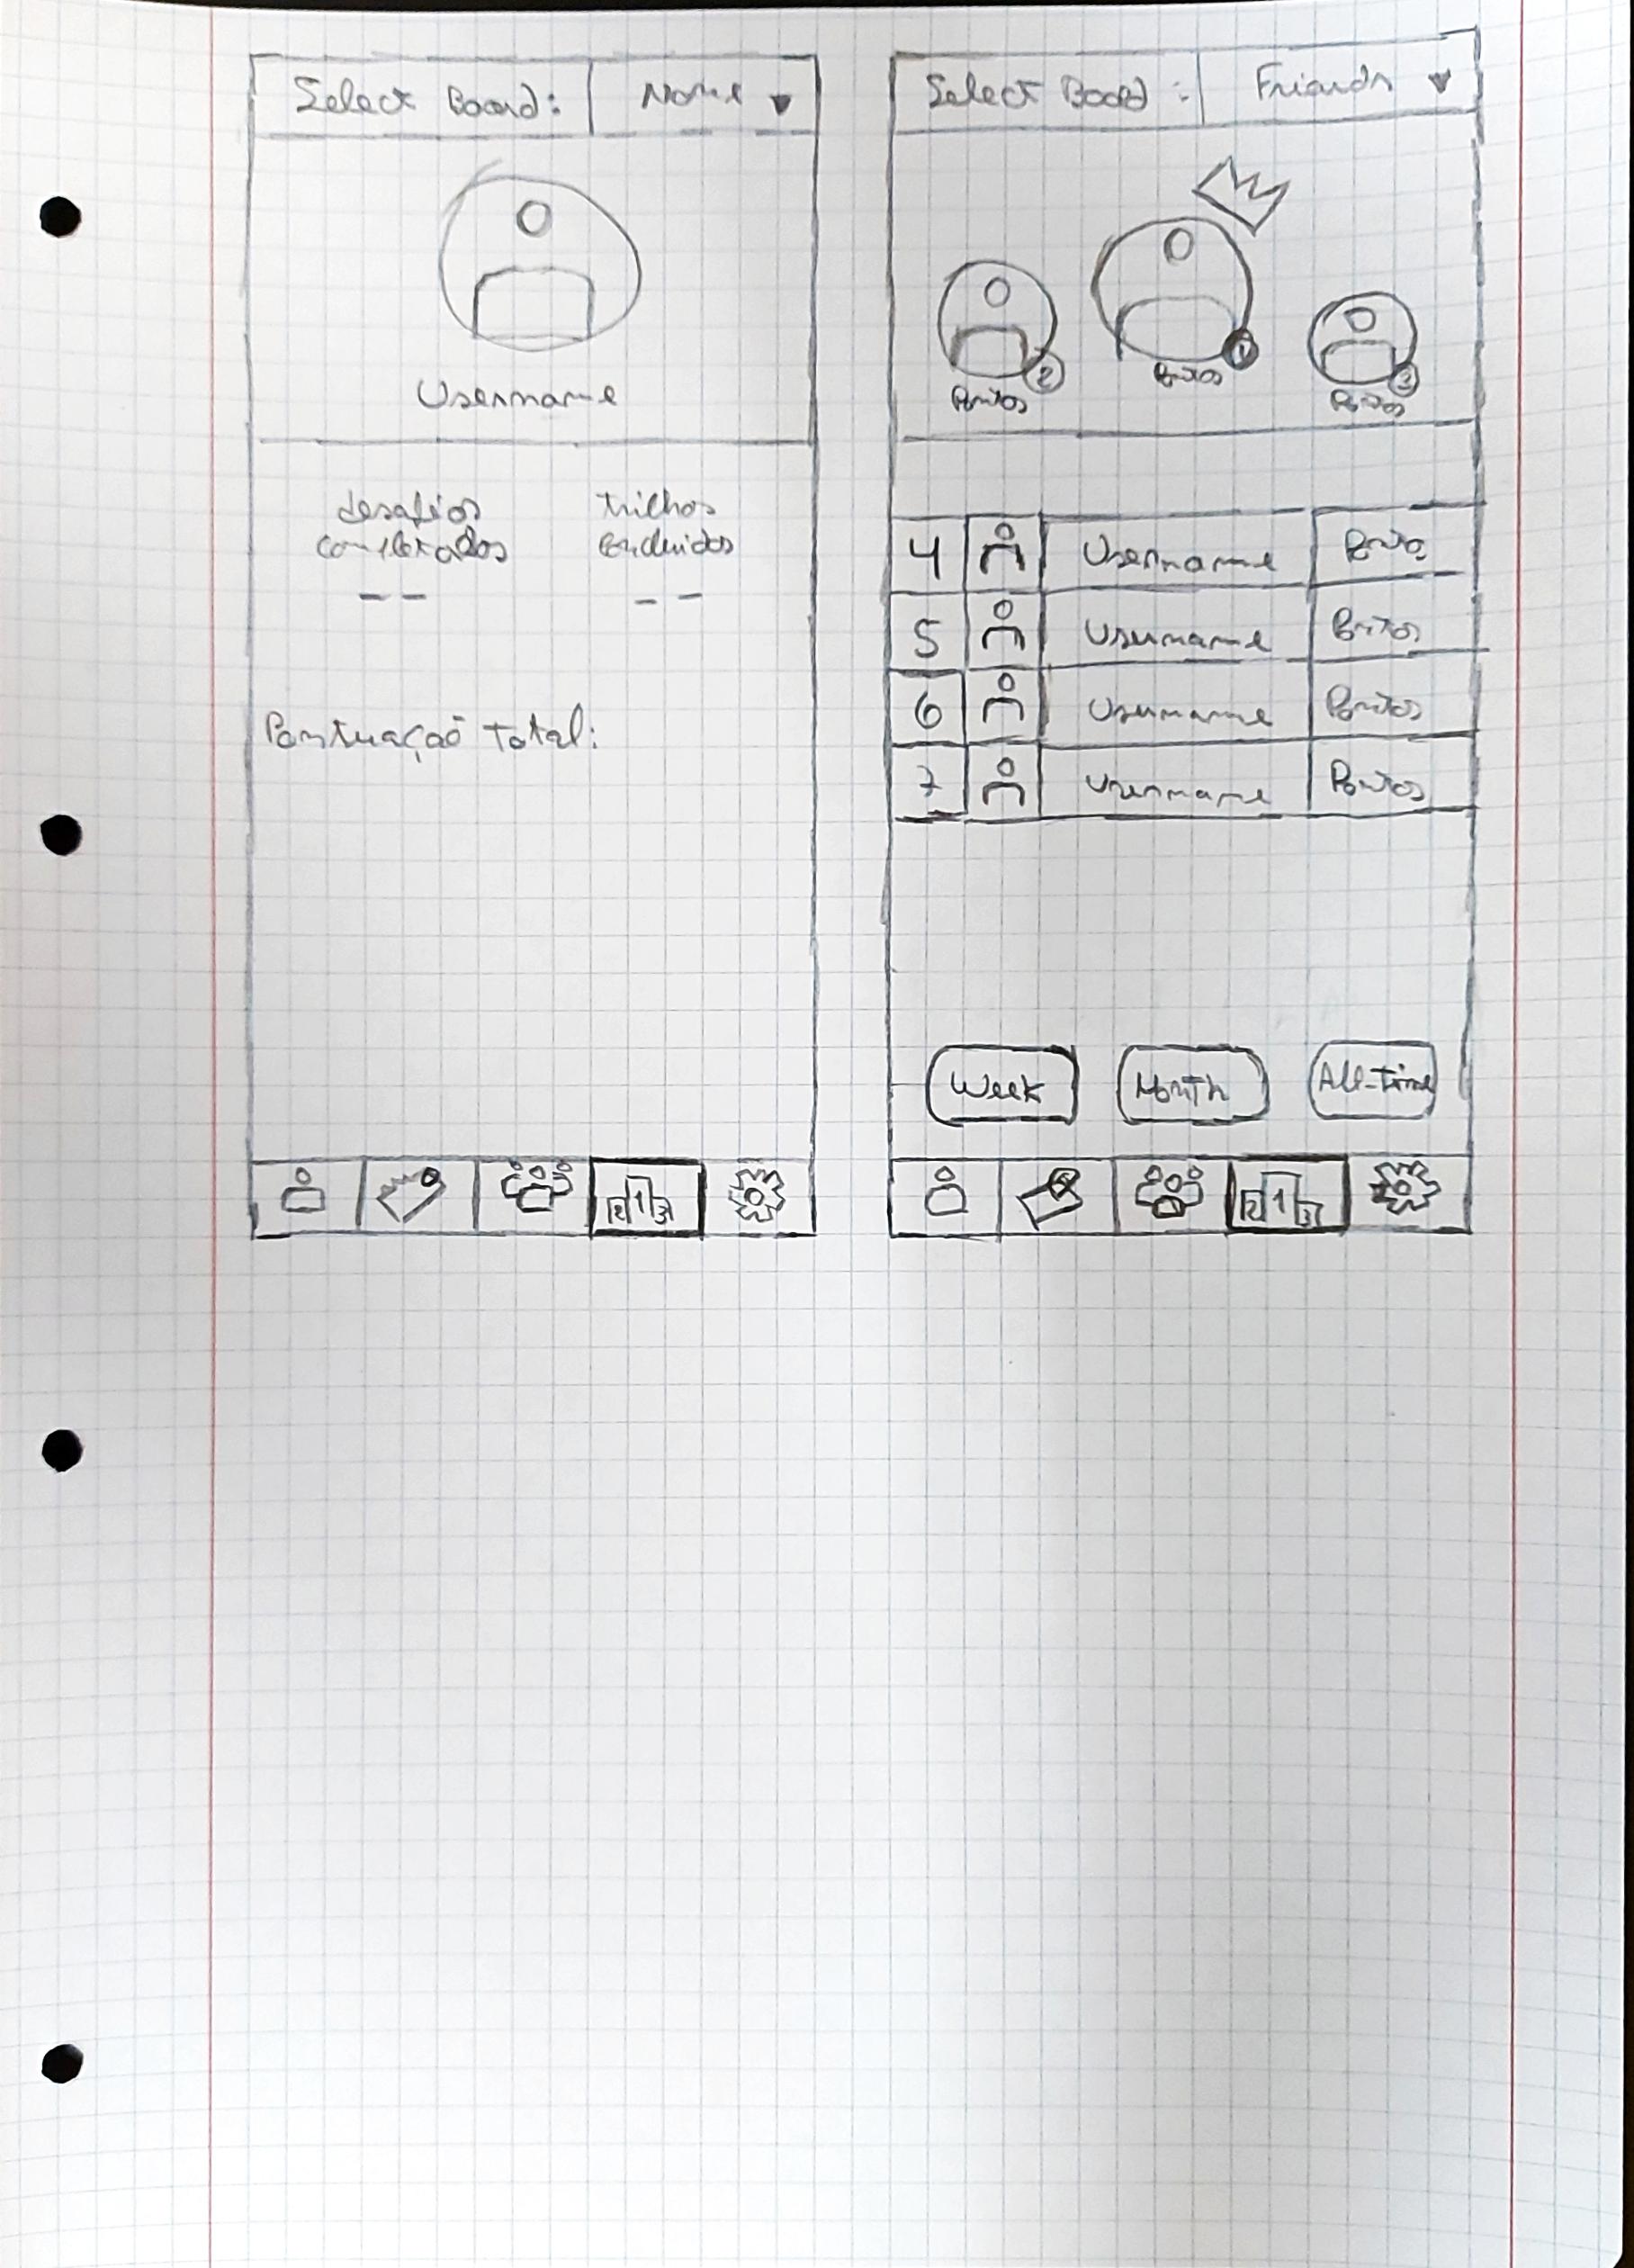 Select Board: None
Username
desafios completados
-- 
trilhos concluidos
--
Pontuação total:
2 1 3
Select Board: Friends
1
Pontos
2
Pontos
3
Pontos
4 Username Pontos
5 Username Pontos
6 Username Pontos
7 Username Pontos
Week Month All-Time
2 1 3